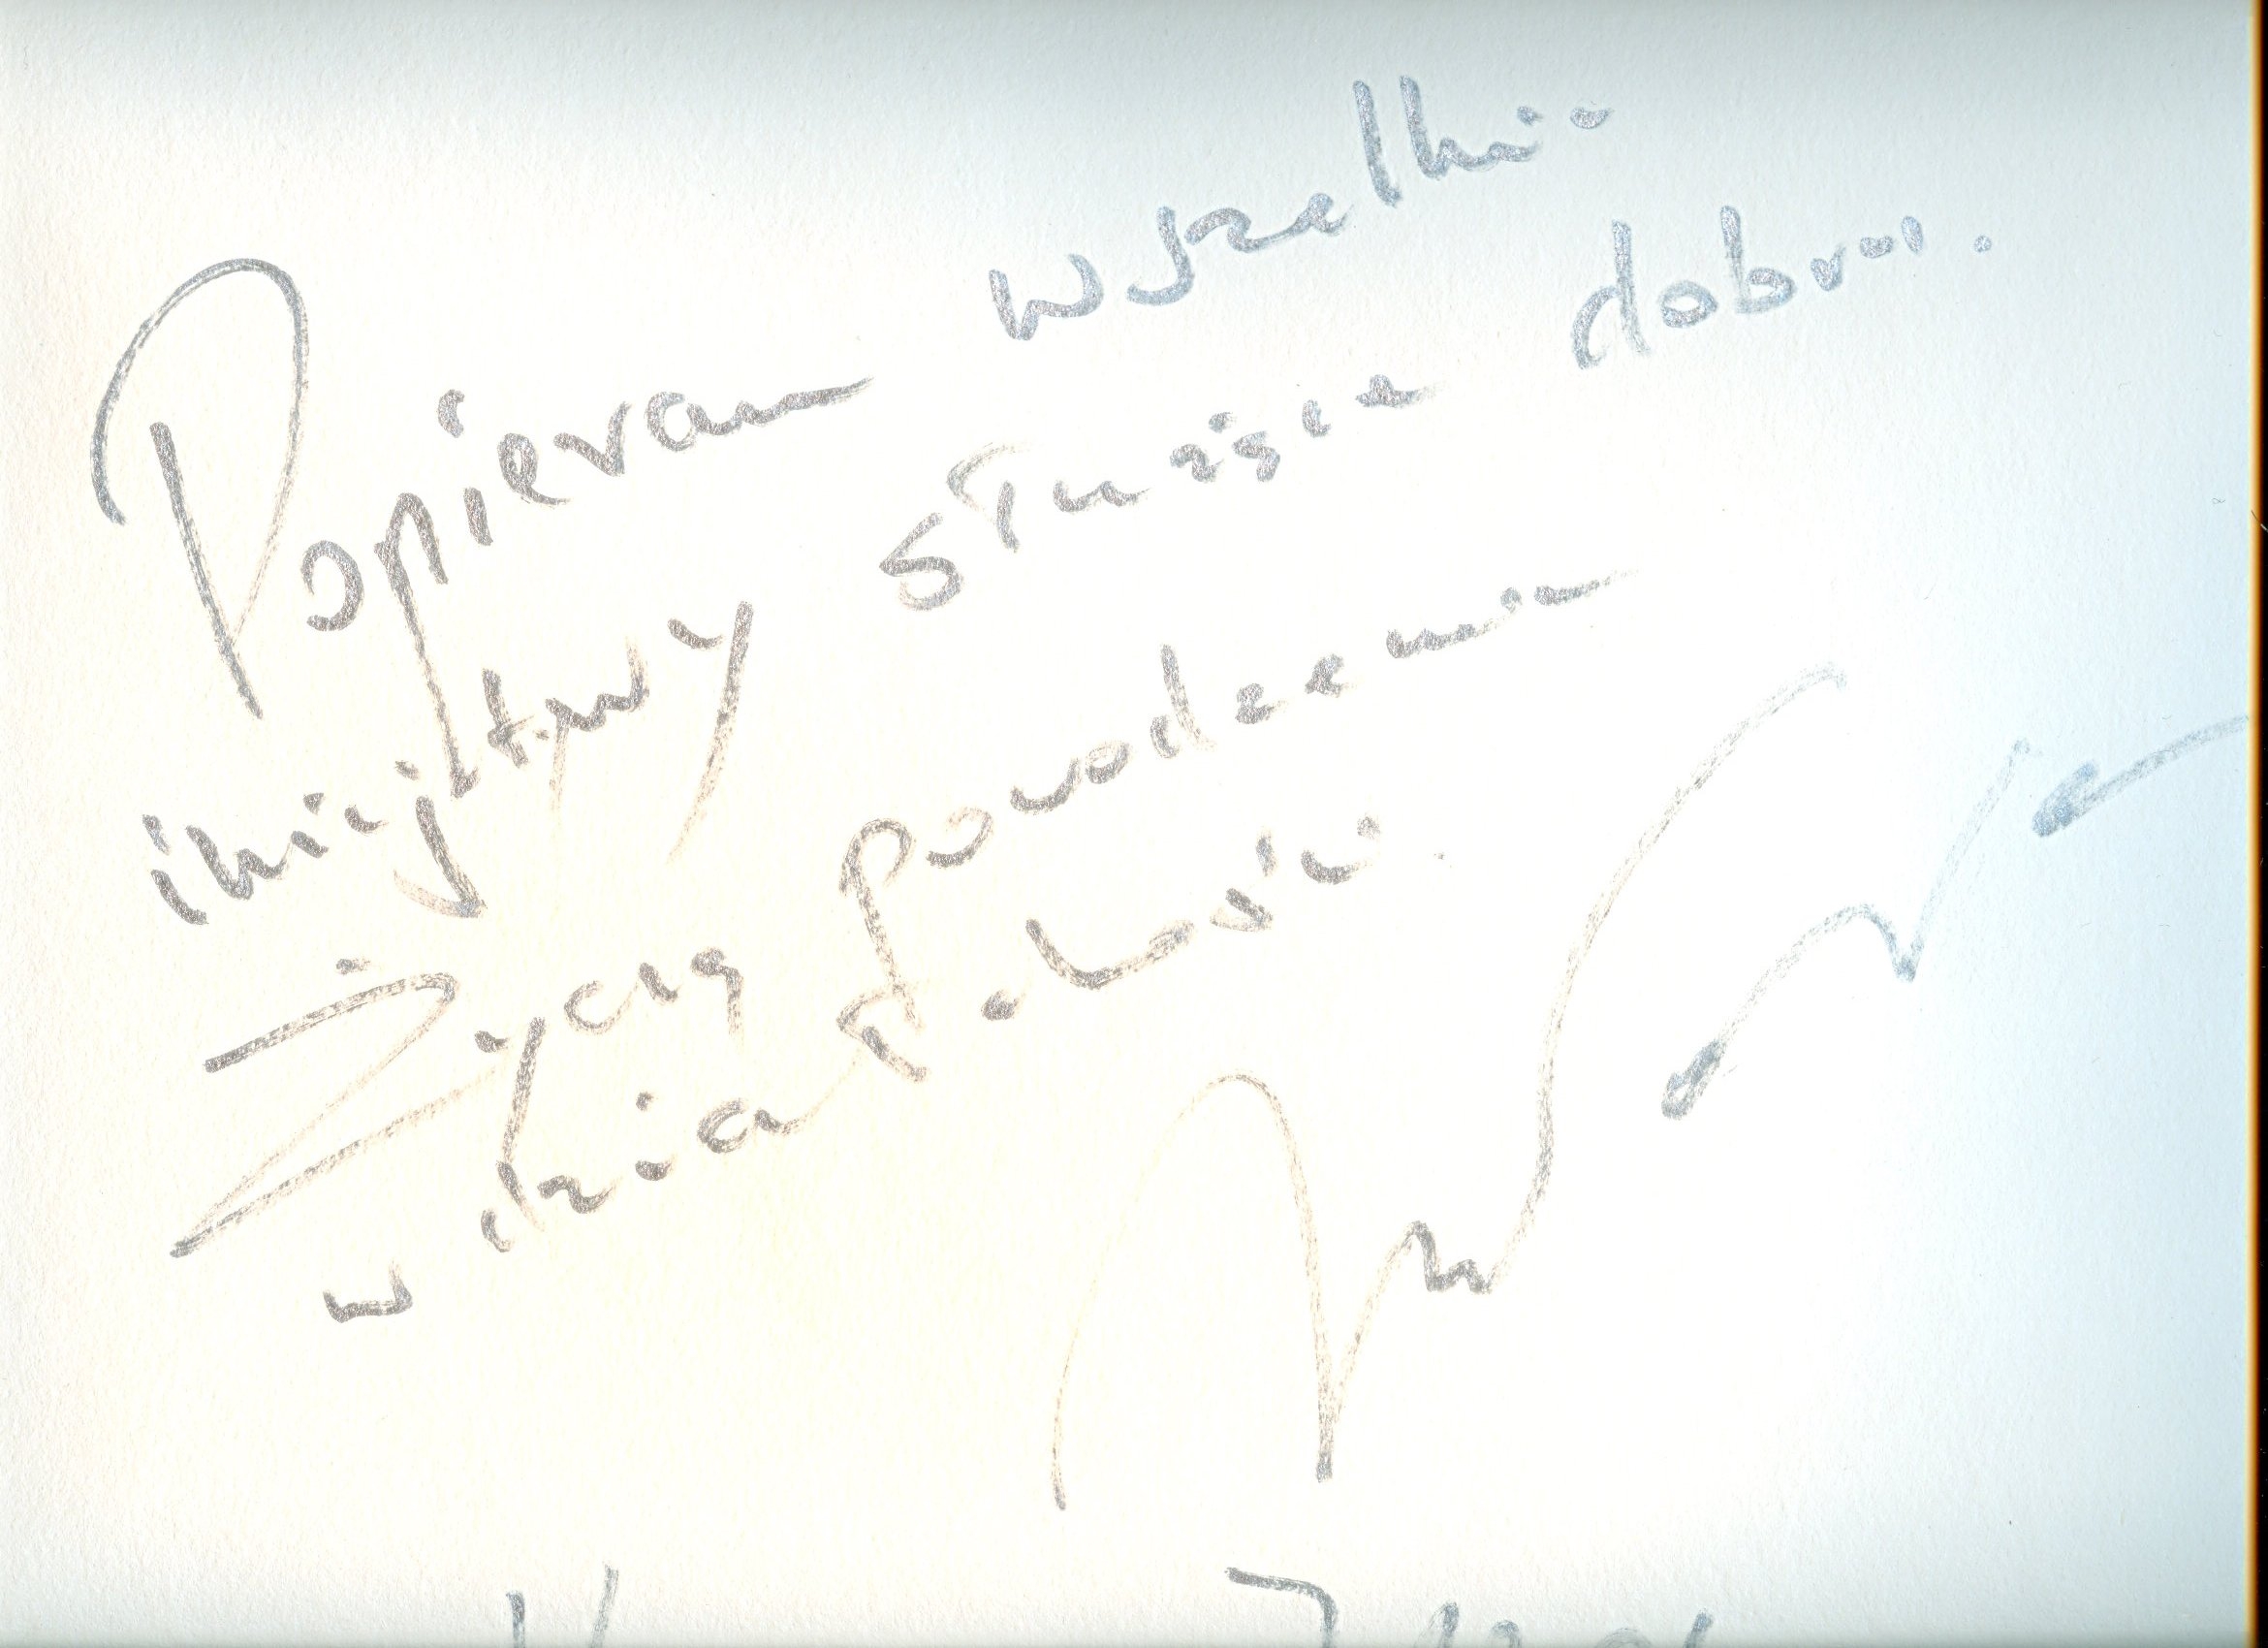 Popieram wszelkie
inicjatywy służące dobru.
Życzę powodzenia
w działalności.